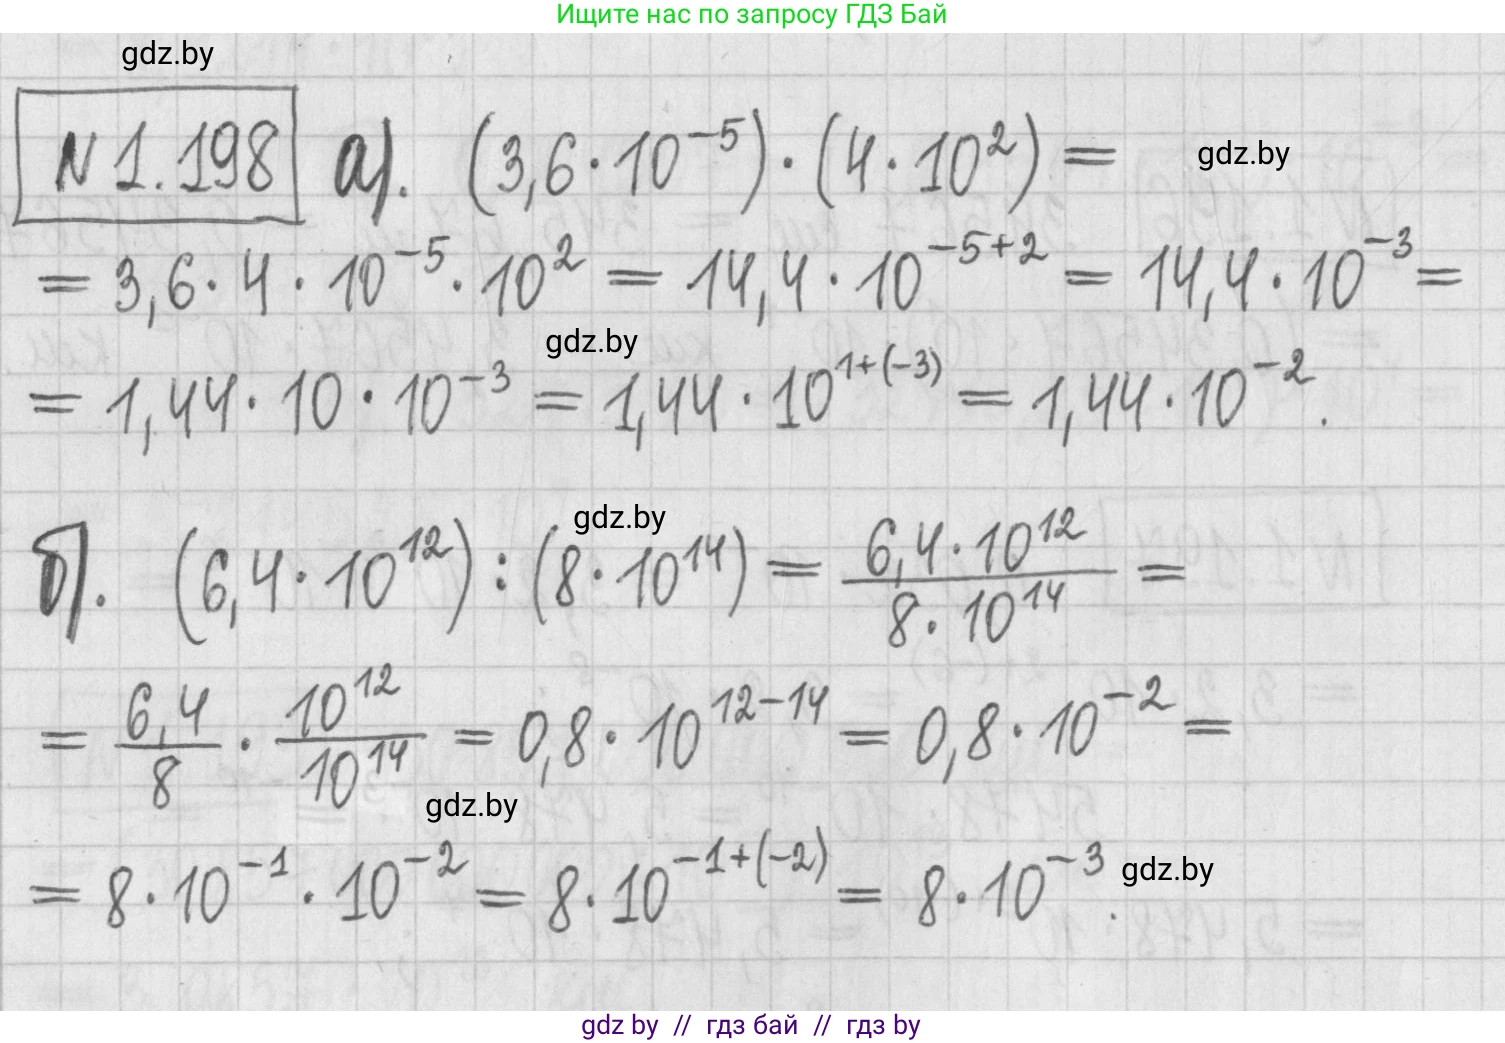 Ищите нас по запросу ГДЗ Бай
gdz.by
N 1.198 а). (3,6·10⁻⁵)·(4·10²)= gdz.by
= 3,6·4·10⁻⁵·10² = 14,4·10⁻⁵⁺² = 14,4·10⁻³ =
gdz.by
= 1,44·10·10⁻³ = 1,44·10¹⁺⁽⁻³⁾ = 1,44·10⁻².
gdz.by
б). (6,4·10¹²):(8·10¹⁴) = (6,4·10¹²)/(8·10¹⁴) =
= 6,4/8 · 10¹²/10¹⁴ = 0,8·10¹²⁻¹⁴ = 0,8·10⁻² =
gdz.by
= 8·10⁻¹·10⁻² = 8·10⁻¹⁺⁽⁻²⁾ = 8·10⁻³. gdz.by
gdz by // гдз бай // гдз by